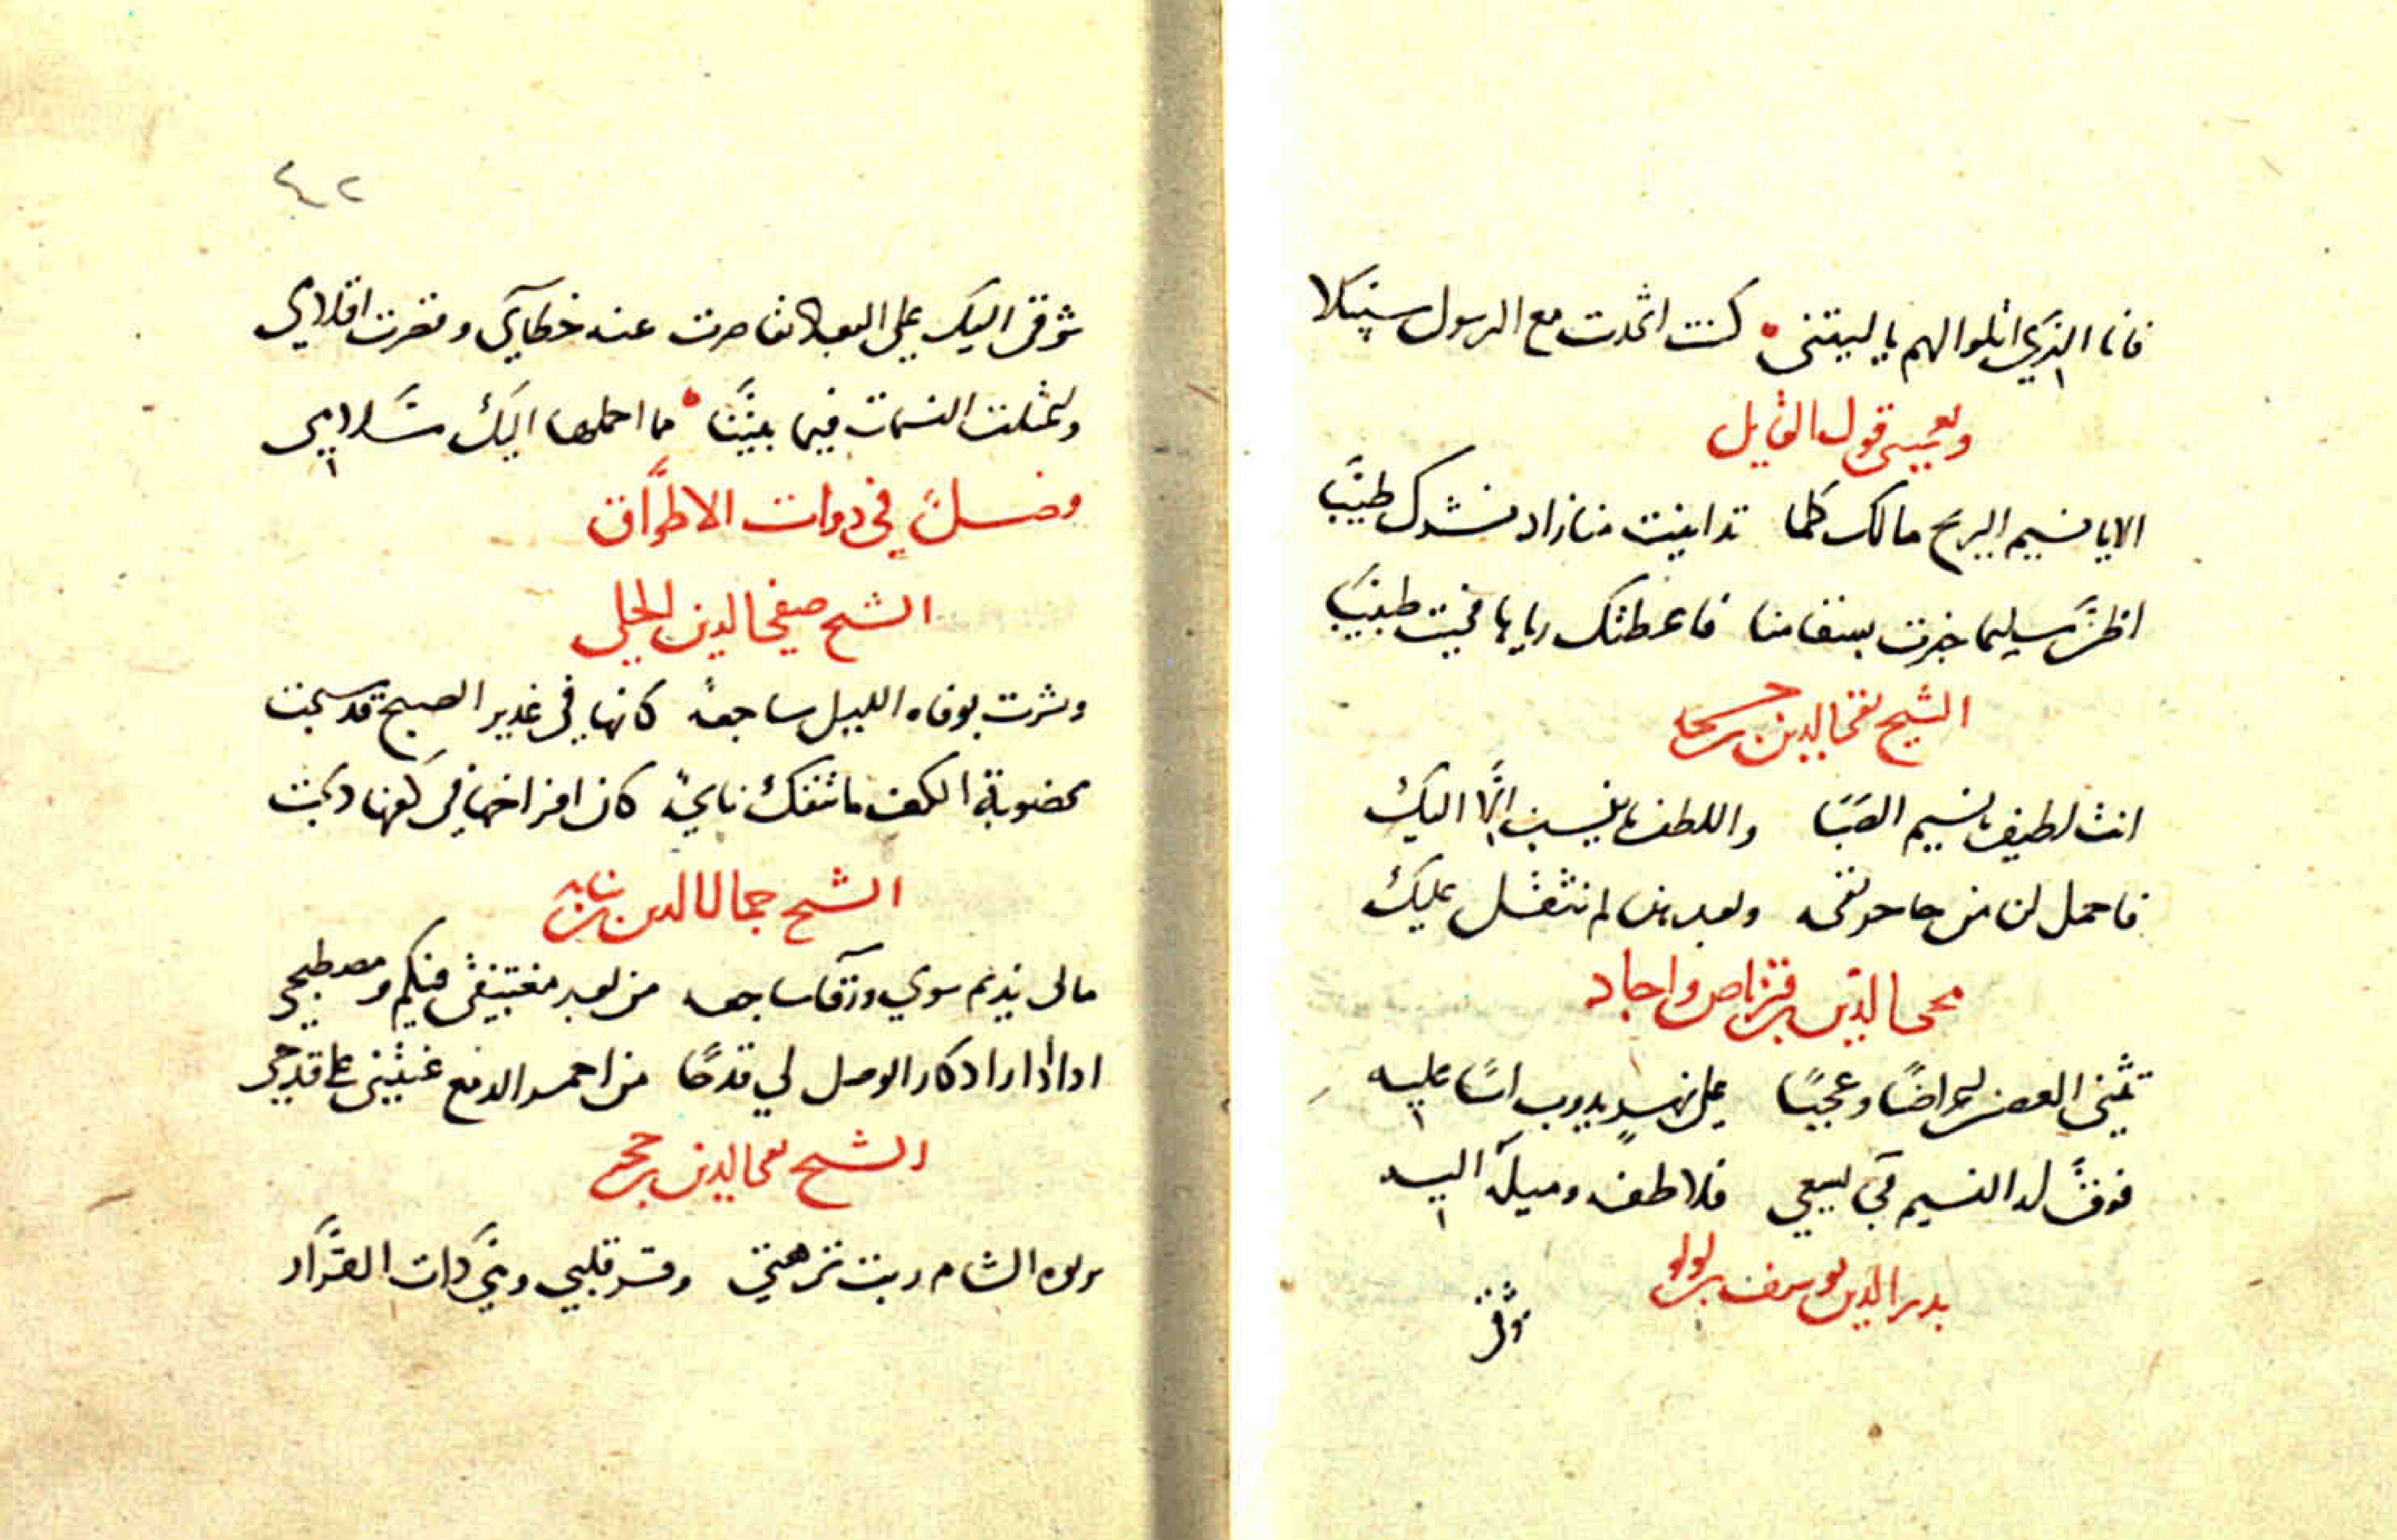 فانا الذي اتلوا لهم يا ليتني كنت اتخدت مع الرسول سبيلا
ويعجبني قول القايل
الا يا نسيم الريح مالك كلما تدانيت منا زاد نشرك طيبا
اظن سليما خبرت بسقامنا فاعطتك رياها فجيت طبيبا
الشيخ تقي الدين بن حجه
انت لطيف يا نسيم الصبا واللطف ما ينسب الا اليك
فاحمل لن من وبعد لم نثقل عليك
محي الدين بن قرناص واجاد
تمنى الغصن اعراضا وعجبا على نهر يدوب اسا عليه
فرق له النسيم في يسعى فلاطفه وميله اليه
بدر الدين يوسف بن لولو
شوقي
٤٢
شوقي اليك على البعاد تقاصرت عنه خطاي وقصرت اقلامي
واعتلت النسمات فيما بيننا مما احملها اليك سلامي
فصل في دوات الاطواق
الشيخ صفي الدين الحلي
وبشرت بوفاه الليل ساجعة كانها في غدير الصبح قد سبحت
مخضوبة الكف ما تنفك نايحة كان افراخها في كفها دبحت
الشيخ جمال الدين بن نباته
مالي نديم سوي ورقا ساجعه من بعد مغتبقي فيكم ومصطبحي
ادا ادار ادكار الوصل لي قدحا من احمر الدمع غنتني على قدحي
الشيخ تقي الدين بن حجه
بربوه الشام ربت نزهتي وقر قلبي وبي دات القرار